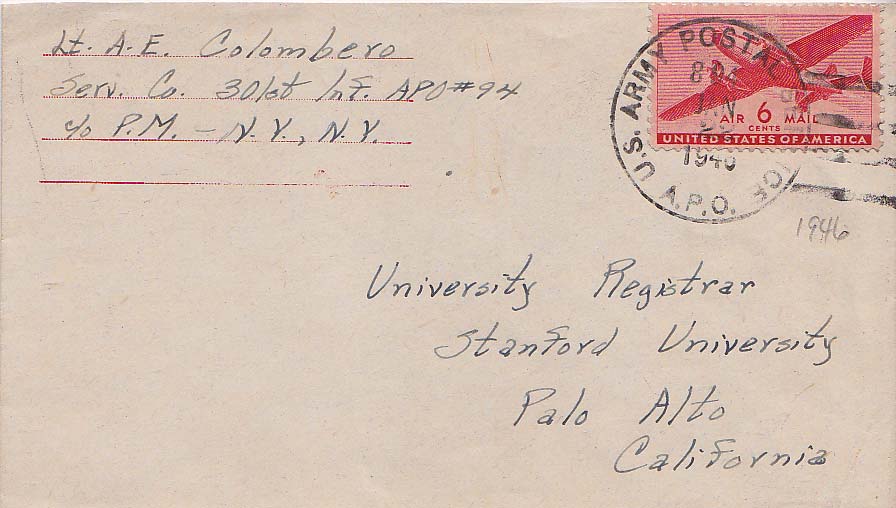 Lt. A.E. Colombero
Serv. Co. 301st Inf. APO #94
c/o P.M. - N.Y., N.Y.
U.S. ARMY POSTAL
A.P.O.
JAN
1946
AIR 6 MAIL
CENTS
UNITED STATES OF AMERICA
1946
University Registrar
Stanford University
Palo Alto
California